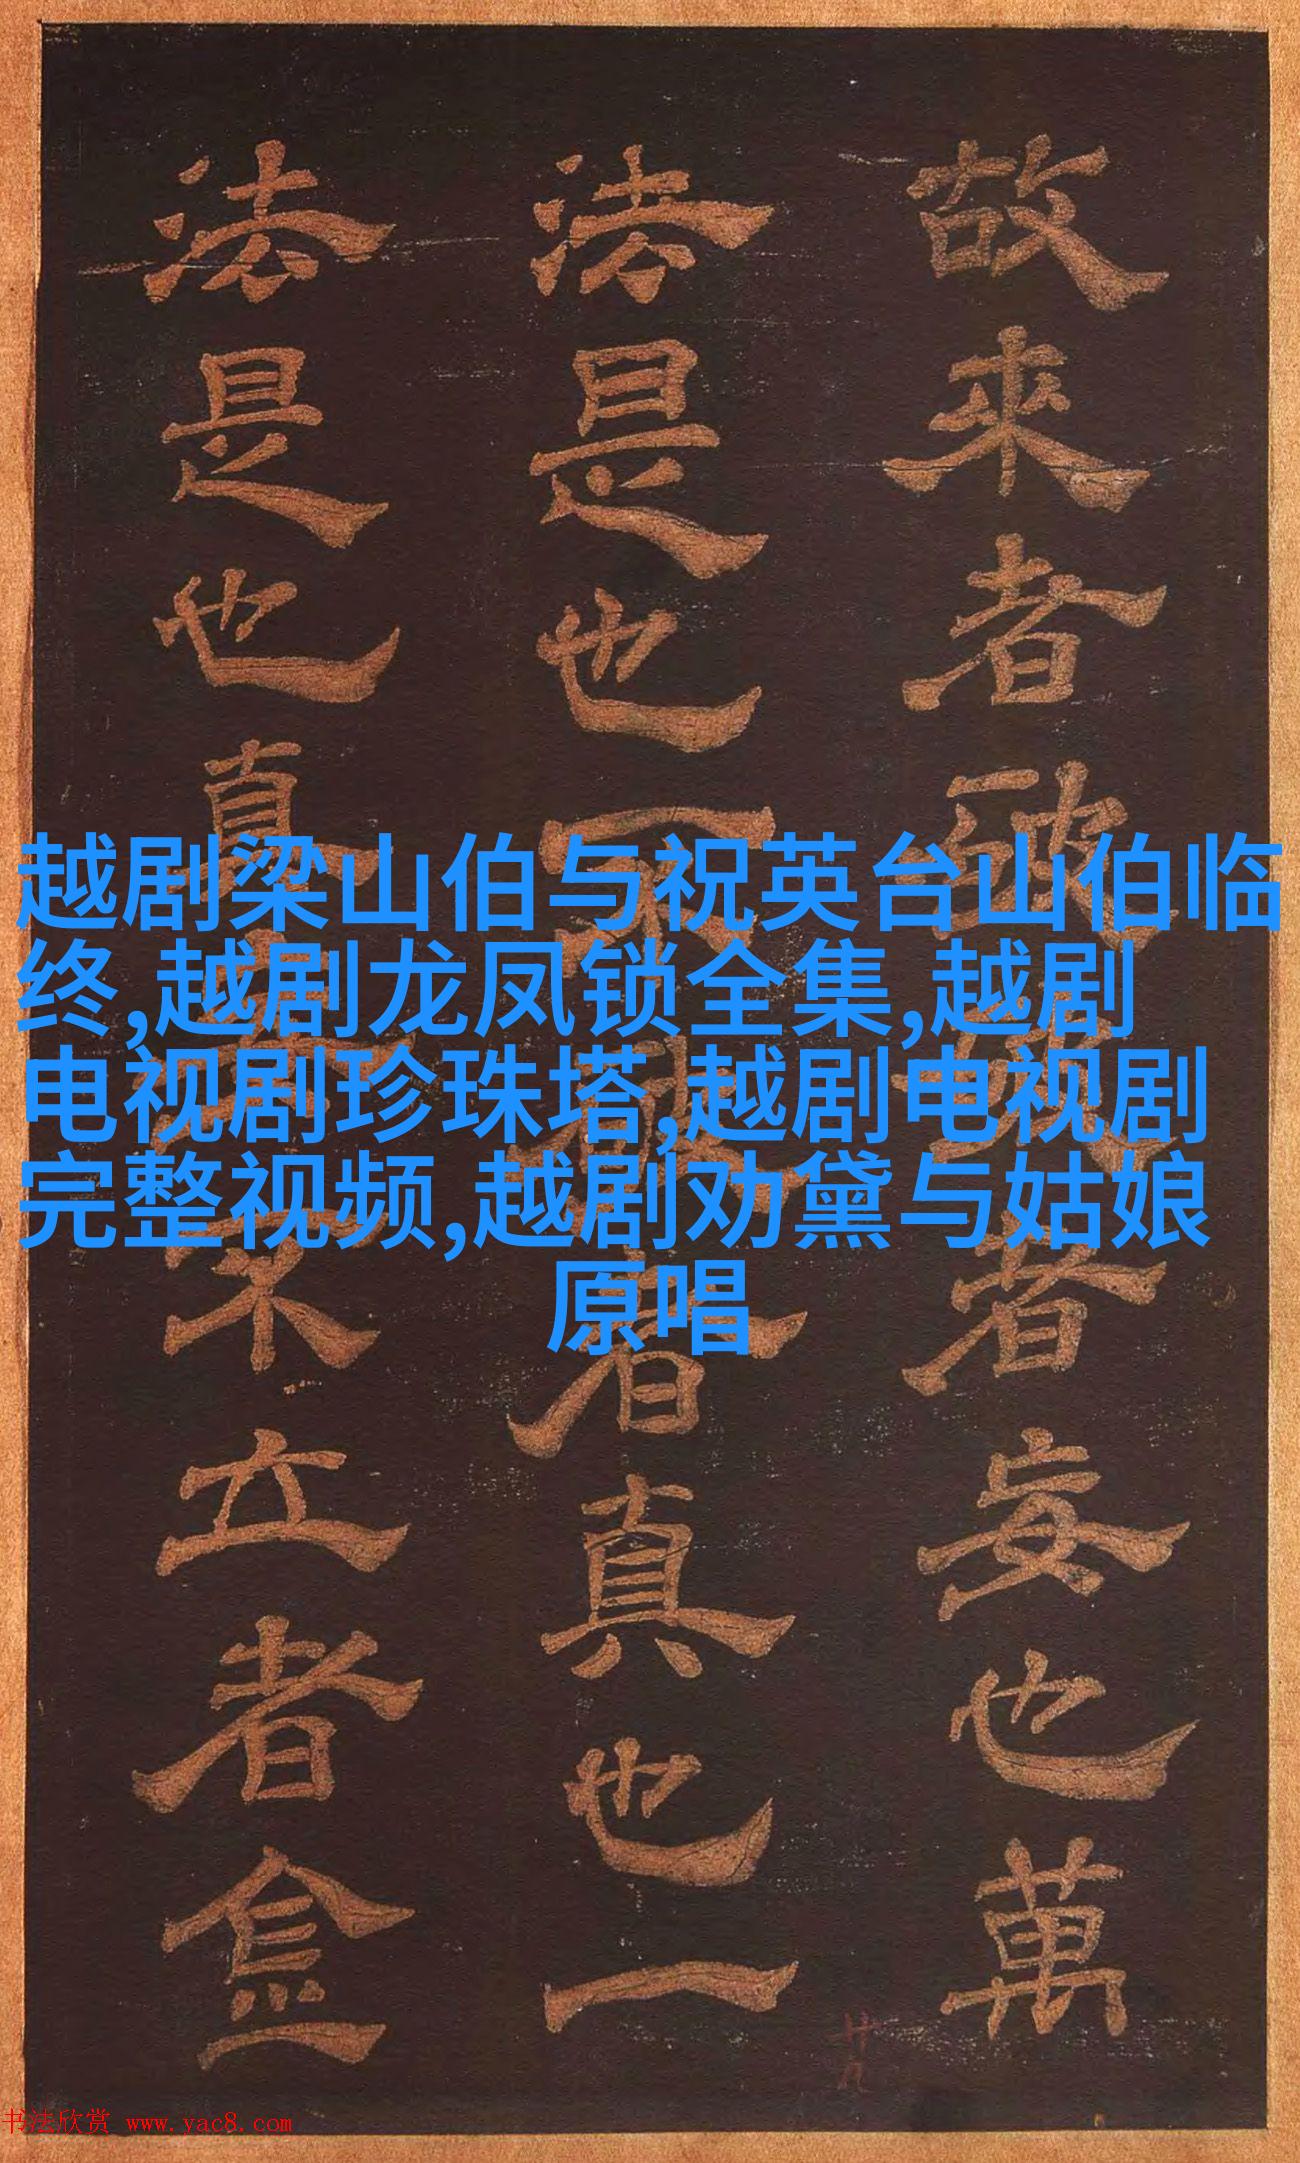 越剧梁山伯与祝英台山伯临
终,越剧龙凤锁全集,越剧
电视剧珍珠塔,越剧电视剧
完整视频,越剧劝黛与姑娘
原唱
故來者者妄也萬
法是也不者真也一
法是也真不立者
书法欣赏 www.yac8.com